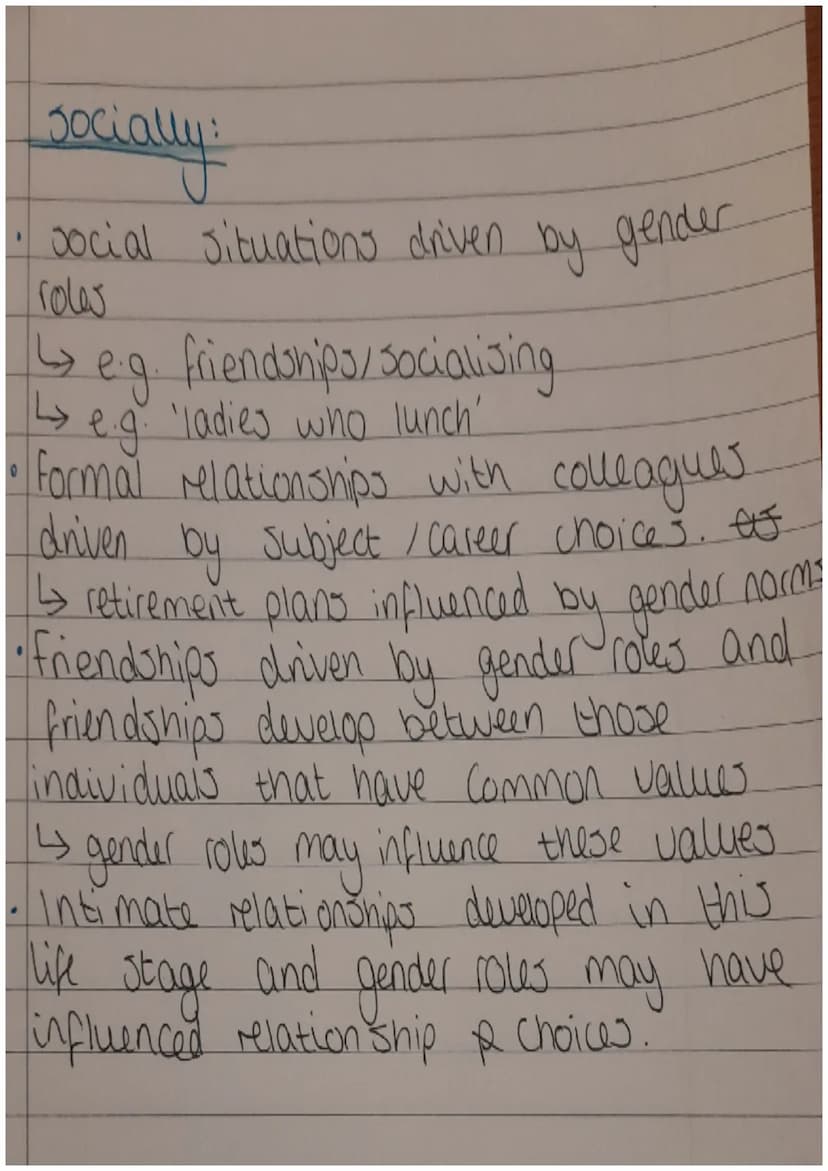 Socially:
• social situations driven by gender
roles
↳ e.g. friendships/socialising
↳ e.g. 'ladies who lunch'
• Formal relationships with colleagues
driven by subject / career choices.
↳ retirement plans influenced by gender norms
• friendships driven by gender roles and
friendships develop between those
individuals that have common values
↳ gender roles may influence these values
• Intimate relationships developed in this
life stage and gender roles may have
influenced relationship choices.